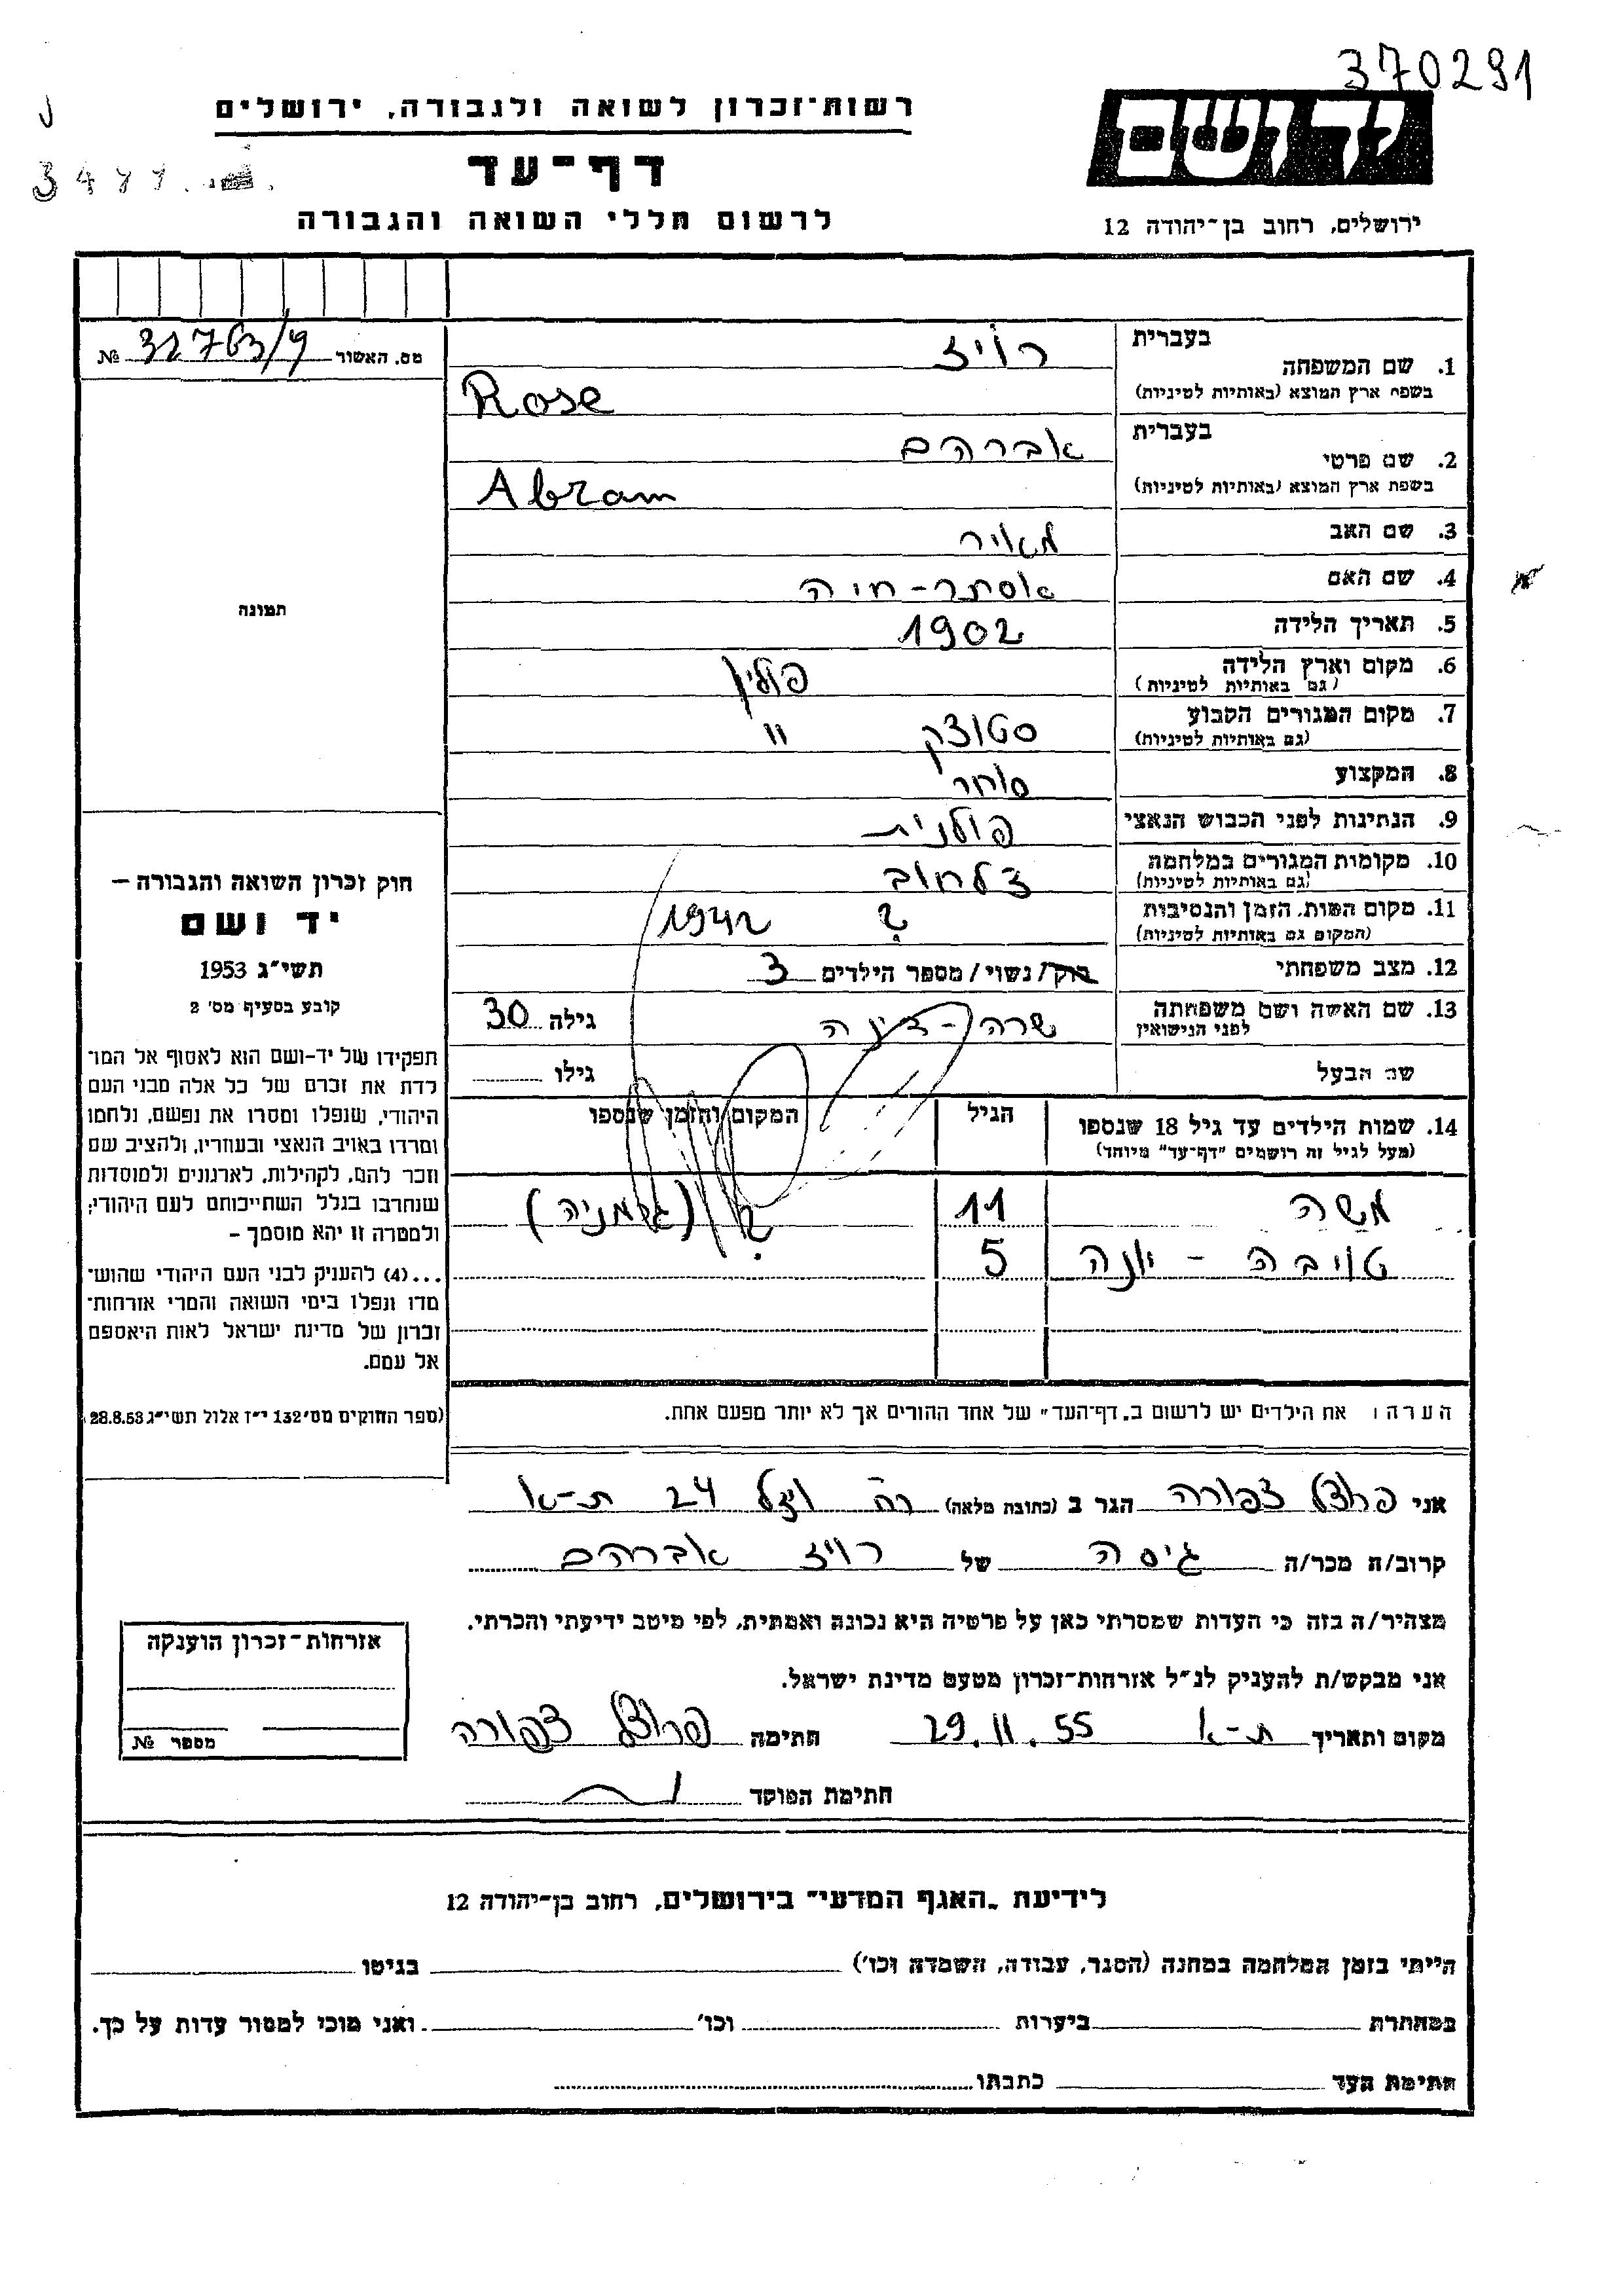 370291
רשות־זכרון לשואה ולגבורה, ירושלים
יד ושם
דף־עד
לרשום חללי השואה והגבורה
ירושלים, רחוב בן־יהודה 12
מס. האשור 31763/9 №
בעברית רויז
1. שם המשפחה
בשפת ארץ המוצא (באותיות לטיניות) Rose
בעברית אברהם
2. שם פרטי
בשפת ארץ המוצא (באותיות לטיניות) Abram
3. שם האב מאיר
4. שם האם אסתר-חיה
5. תאריך הלידה 1902
6. מקום וארץ הלידה פולין
(גם באותיות לטיניות)
7. מקום המגורים הקבוע סטוצק "
(גם באותיות לטיניות)
8. המקצוע סוחר
9. הנתינות לפני הכבוש הנאצי פולנית
10. מקומות המגורים במלחמה צלחוב
(גם באותיות לטיניות)
11. מקום המות, הזמן והנסיבות ? 1942
(המקום גם באותיות לטיניות)
12. מצב משפחתי רוק/נשוי/מספר הילדים 3
13. שם האשה ושם משפחתה שרה- גילה 30
לפני הנישואין
שם הבעל גילו
14. שמות הילדים עד גיל 18 שנספו הגיל המקום והזמן שנספו
(מעל לגיל זה רושמים "דף־עד" מיוחד)
משה 11 ? (גרמניה)
טויבה - יונה 5
הערה: את הילדים יש לרשום ב„דף־העד" של אחד ההורים אך לא יותר מפעם אחת.
תמונה
חוק זכרון השואה והגבורה –
יד ושם
תשי"ג 1953
קובע בסעיף מס' 2
תפקידו של יד-ושם הוא לאסוף אל המו־
לדת את זכרם של כל אלה מבני העם
היהודי, שנפלו ומסרו את נפשם, נלחמו
ומרדו באויב הנאצי ובעוזריו, ולהציב שם
וזכר להם, לקהילות, לארגונים ולמוסדות
שנחרבו בגלל השתייכותם לעם היהודי;
ולמטרה זו יהא מוסמך –
...(4) להעניק לבני העם היהודי שהוש־
מדו ונפלו בימי השואה והמרי אזרחות־
זכרון של מדינת ישראל לאות היאספם
אל עמם.
(ספר החוקים מס' 132 י"ז אלול תשי"ג 28.8.53)
אני צפורה הגר ב (כתובת מלאה) 24 ת-א
קרוב/ה מכר/ה גיסה של רויז אברהם
מצהיר/ה בזה כי העדות שמסרתי כאן על פרטיה היא נכונה ואמתית, לפי מיטב ידיעתי והכרתי.
אני מבקש/ת להעניק לנ"ל אזרחות־זכרון מטעם מדינת ישראל.
מקום ותאריך ת-א 29.11.55 חתימה צפורה
חתימת הפוקד
אזרחות־זכרון הוענקה
מספר №
לידיעת „האגף המדעי" בירושלים, רחוב בן־יהודה 12
הייתי בזמן המלחמה במחנה (הסגר, עבודה, השמדה וכו') בגיטו
במחתרת ביערות וכו' ואני מוכן למסור עדות על כך.
חתימת העד כתבתו